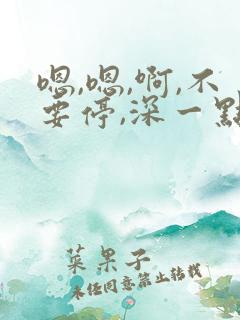 嗯,嗯,啊,不
要停,深一點
菜果子
未经同意禁止转载